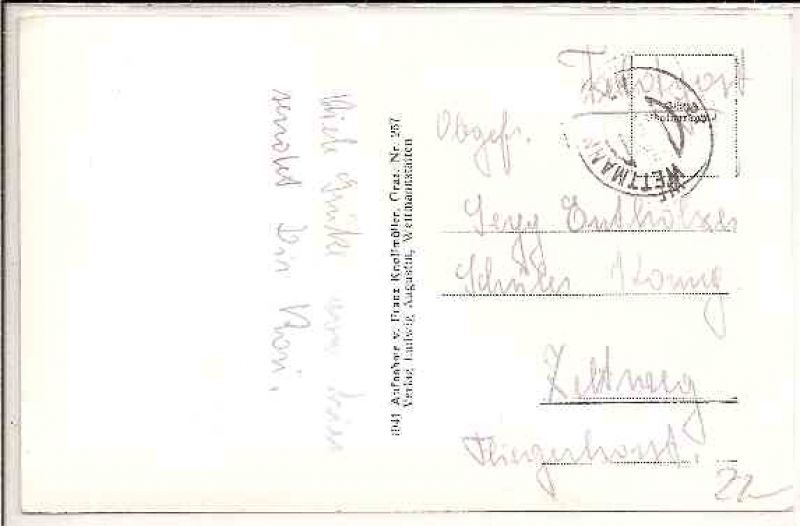 Viele Grüße von hier
sendet Dir
1941 Aufnahme v. Franz Knollmüller, Graz. Nr. 257
Verlag Ludwig Augustin, Wettmannstätten
Feldpost
WETTMANN
Obgefr.
Sepp
Schüler Komp
Zeltweg
Fliegerhorst.
22